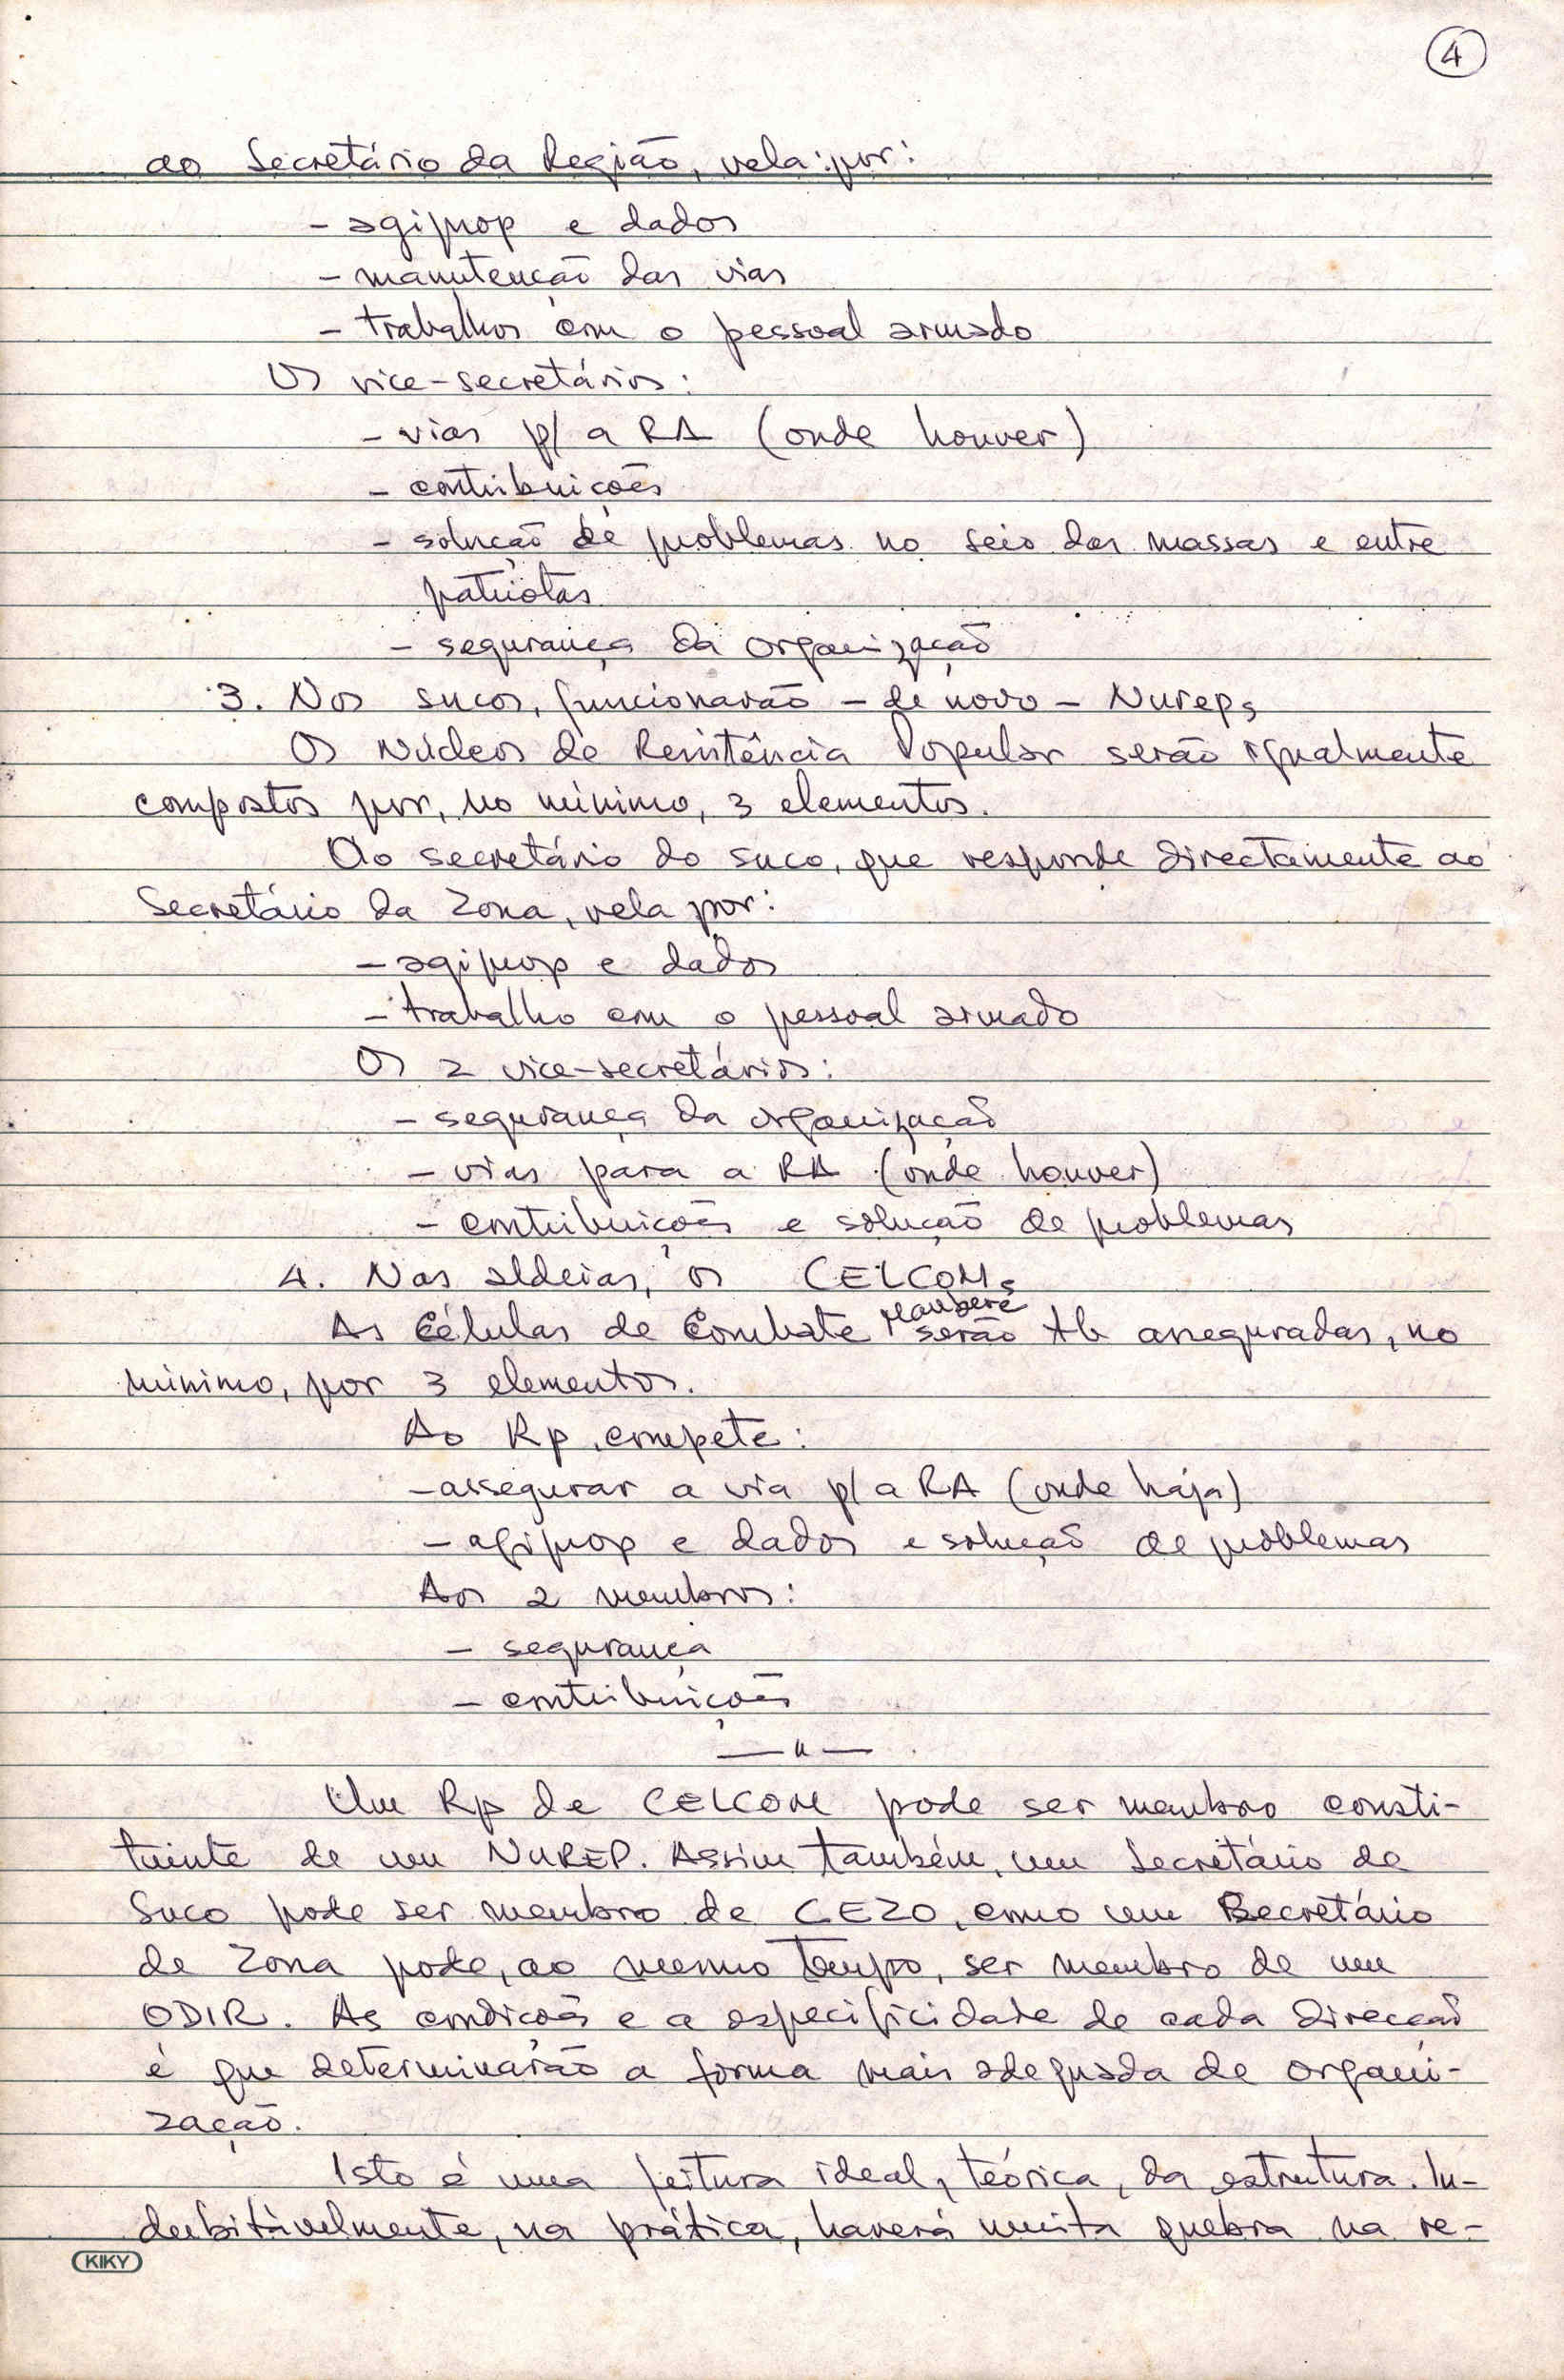 4
ao Secretário da Região, vela por:
- agiprop e dados
- manutenção das vias
- trabalhos com o pessoal armado
Os vice-secretários:
- vias p/ a RA (onde houver)
- contribuições
- solução de problemas no seio das massas e entre
patriotas
- segurança da organização
3. Nos sucos, funcionarão - de novo - Nureps
Os Núcleos de Resistência Popular serão igualmente
compostos por, no mínimo, 3 elementos.
Ao secretário do suco, que responde directamente ao
Secretário da Zona, vela por:
- agiprop e dados
- trabalho com o pessoal armado
Os 2 vice-secretários:
- segurança da organização
- vias para a RA (onde houver)
- contribuições e solução de problemas
4. Nas aldeias, os CELCOMs
As Células de Combate Maubere serão tb asseguradas, no
mínimo, por 3 elementos.
Ao Rp compete:
- assegurar a via p/ a RA (onde haja)
- agiprop e dados e solução de problemas
Aos 2 membros:
- segurança
- contribuições
—"—
Um Rp de CELCOM pode ser membro consti-
tuinte de um NUREP. Assim também, um Secretário de
Suco pode ser membro de CEZO, como um Secretário
de Zona pode, ao mesmo tempo, ser membro de um
ODIR. As condições e a especificidade de cada direcção
é que determinarão a forma mais adequada de organi-
zação.
Isto é uma feitura ideal, teórica, da estrutura. In-
dubitàvelmente, na prática, haverá muita quebra na re-
KIKY